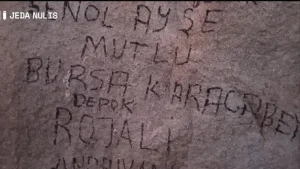 JEDA NULIS
ŞENOL AYŞE
MUTLU
BURSA KARACABEY
DEPOK
ROJALI